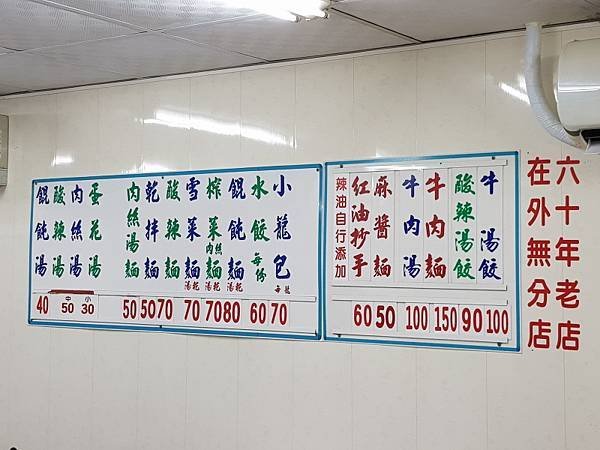 六十年老店
在外無分店
牛湯餃 100
酸辣湯餃 90
牛肉麵 150
牛肉湯 100
麻醬麵 50
紅油抄手 60
辣油自行添加
小龍包 每籠 70
水餃 每份 60
餛飩麵 湯乾 80
榨菜肉絲麵 湯乾 70
雪菜麵 湯乾 70
酸辣麵 70
乾拌麵 50
肉絲湯麵 50
蛋花湯
肉絲湯
酸辣湯
小 30
中 50
餛飩湯 40